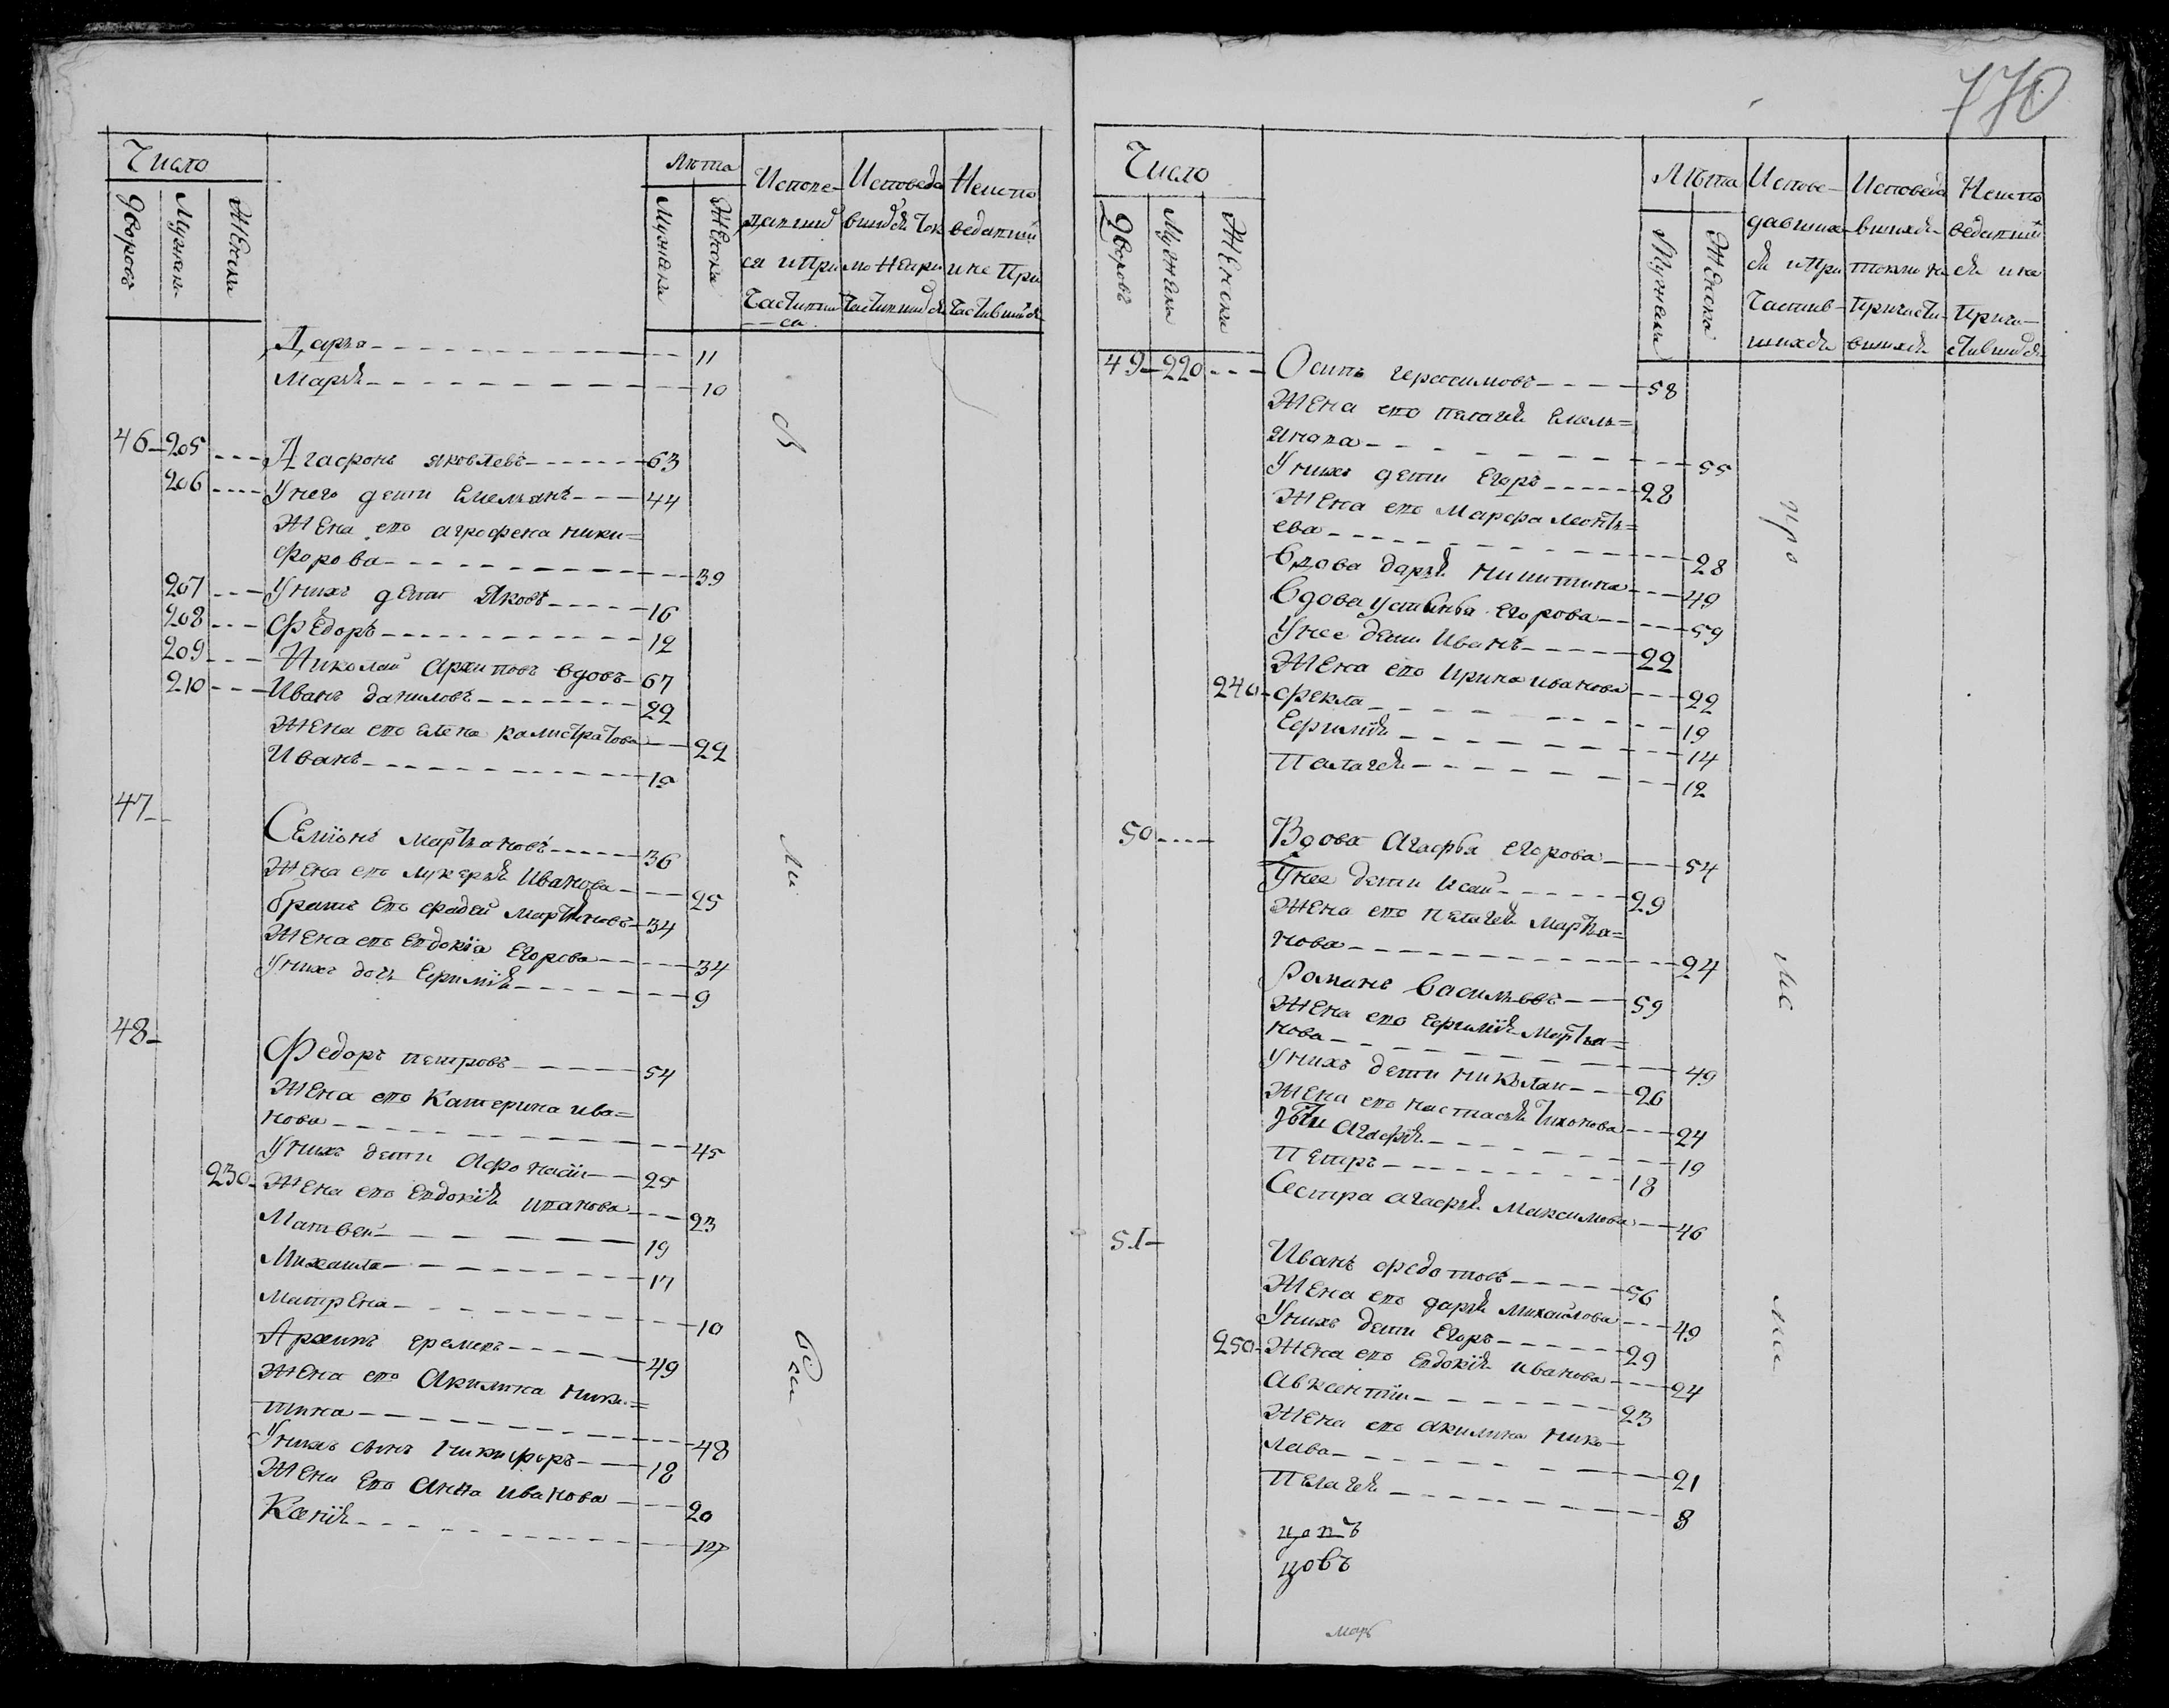 Число
Лета
Дворовъ
Мужски
Женски
Мужески
Женски
Испове-
давши
ся и При
частивши
ся
Исповеда
вшидся Ток
мо Непри
частившидся
Неиспо
ведавши
и не При
частившися
Дарья 11
Марья 10
46 205 Агафонъ яковлевъ 63
206 У него дети Емельянъ 44
Жена его агрофена ники=
форова 39
207 У нихъ дети Яковъ 16
208 Федоръ 12
209 Николай Архиповъ вдовъ 67
210 Иванъ даниловъ 22
Жена его елена калистратова 22
Иванъ 19
47
Семионъ Мартьановъ 36
Жена его лукерья Иванова 25
братъ Его фадей Мартьяновъ 34
Жена его Евдокия Егорова 34
У нихъ дочь Ефимия 9
48
Федоръ петровъ 54
Жена его Катерина ива=
нова 45
У нихъ дети Афонасии 25
230 Жена его Евдокия ивановa 23
Матвеи 19
Михаила 17
Матрена 10
Архипъ еремевъ 49
Жена его Акилина ники=
тина 48
У нихъ сынъ Никифоръ 18
Жена Его Анна иванова 20
Ксения 14
в
ли
бы
ли
770
Число
Лета
Дворовъ
Мужески
Женски
Мужески
Женска
Испове-
давших
ся и При
частив-
шихся
Исповеда
вшихся
токмо не
причасти
вшихся
Неиспо
ведавши
ся и не
прича-
стившися
49 220 Осипъ герасимовъ 58
Жена его пелагея Емель=
янова 55
У нихъ дети Егоръ 28
Жена его Марфа леонть=
ева 28
Вдова дарья никитина 49
Вдова устинья Егорова 59
У нее дети Иванъ 22
Жена его Ирина иванова 22
240 фекла 19
Ефимия 14
Палагея 12
50 Вдова Агафья Егорова 54
У нее дети Исаи 29
Жена его пелагея Мартьа=
нова 24
Романъ Васильевъ 59
Жена его Ефимия Мартьа=
нова 49
У нихъ дети николаи 26
Жена его настасья тихонова 24
дети Агафия 19
Петръ 18
Сестра агафья Максимова 46
51
Иванъ федотовъ 56
Жена его дарья Михаилова 49
У нихъ дети Егоръ 29
250 Жена его Евдокия иванова 24
Авксентии 23
Жена его акилина нико=
лава 21
Пелагея 8
цовъ
цовъ
мар